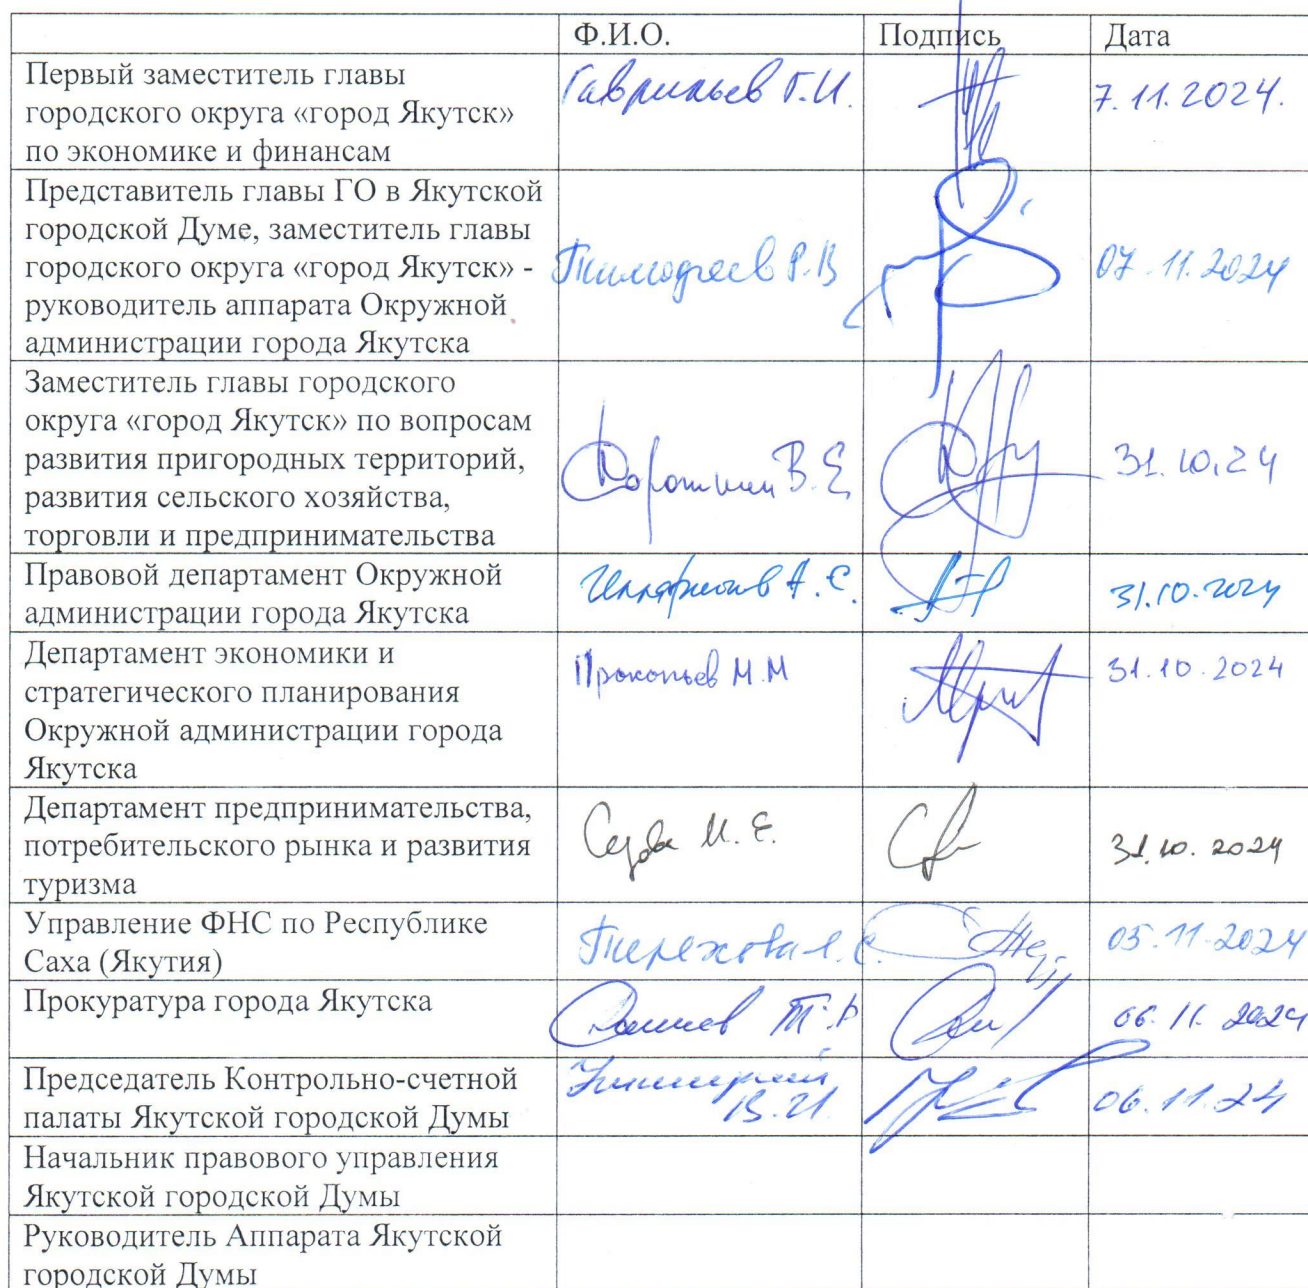 Ф.И.О. Подпись Дата
Первый заместитель главы
городского округа «город Якутск»
по экономике и финансам
Гаврильев Г.И. 7.11.2024.
Представитель главы ГО в Якутской
городской Думе, заместитель главы
городского округа «город Якутск» -
руководитель аппарата Окружной
администрации города Якутска
Тимофеев Р.В 07.11.2024
Заместитель главы городского
округа «город Якутск» по вопросам
развития пригородных территорий,
развития сельского хозяйства,
торговли и предпринимательства
В.Е 31.10.24
Правовой департамент Окружной
администрации города Якутска
А.Е. 31.10.2024
Департамент экономики и
стратегического планирования
Окружной администрации города
Якутска
Прокопьев М.М 31.10.2024
Департамент предпринимательства,
потребительского рынка и развития
туризма
М.Е. 31.10.2024
Управление ФНС по Республике
Саха (Якутия)
05.11.2024
Прокуратура города Якутска
06.11.2024
Председатель Контрольно-счетной
палаты Якутской городской Думы
В.И. 06.11.24
Начальник правового управления
Якутской городской Думы
Руководитель Аппарата Якутской
городской Думы